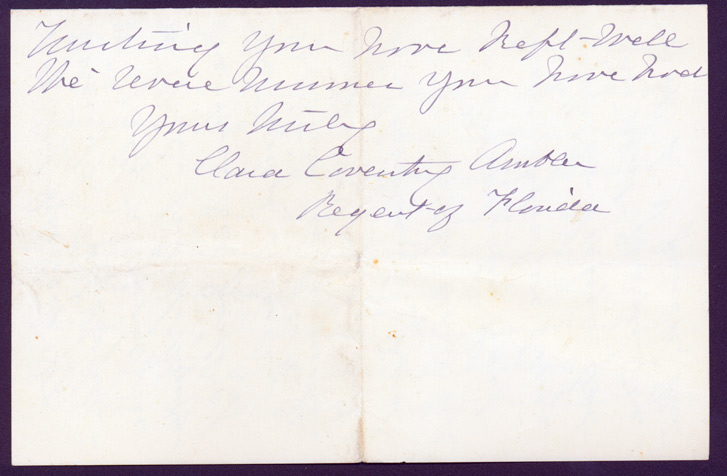 Trusting you have kept well
the severe summer you have had
Yours truly
Clara Coventry Ambler
Regent of Florida